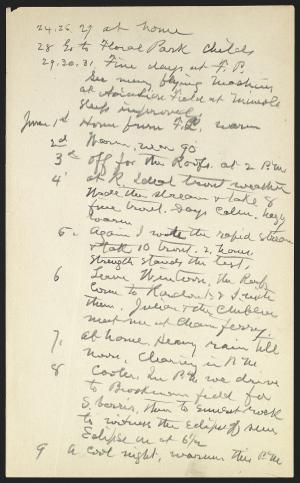 24. 25. 27 at home
28 Go to Floral Park Childs
29. 30. 31, Fine days at F. P.
See many flying machines
at Aviation Field at Mineola
Sleep improved
June 1st Home from F.P. warm
2d Warm, near 90
3d off for the Roofs. at 2 P.M.
4 at R. Ideal trout weather
Wade the stream & take 8
fine trout. Days calm, hazy
warm
5. Again I wade the rapid stream
& take 10 trout. 2 hours
Strength stands the test,
6 Leave Winterton, the Roofs
come to Rondout & I with
them. Julian & the children
meet me at the ferry.
7, at home. Heavy rain till
noon, clearing in P.M.
8 Cooler. In P.M. we drive
to Brookman field for
S. berries, then to sunset rock
to witness the Eclipse of sun
Eclipse on at 6½
9 A cool night, warmer this P.M